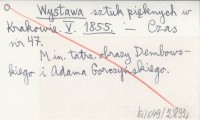 Wystawa sztuk pięknych w
Krakowie. V. 1855. — Czas
nr 47.
M. in. tatrz. obrazy Dembows-
kiego i Adama Gorczyńskiego.